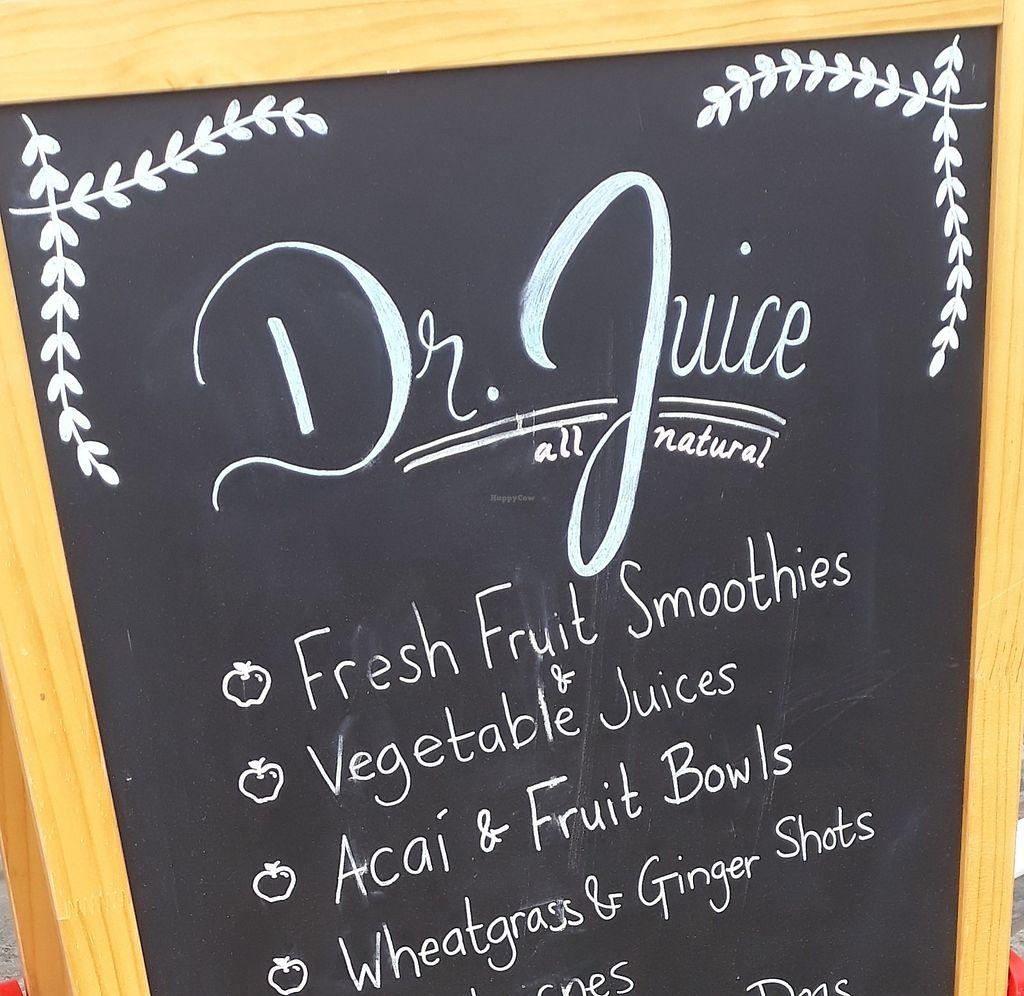 Dr. Juice
all natural
HappyCow
Fresh Fruit Smoothies
&
Vegetable Juices
Acaí & Fruit Bowls
Wheatgrass & Ginger Shots